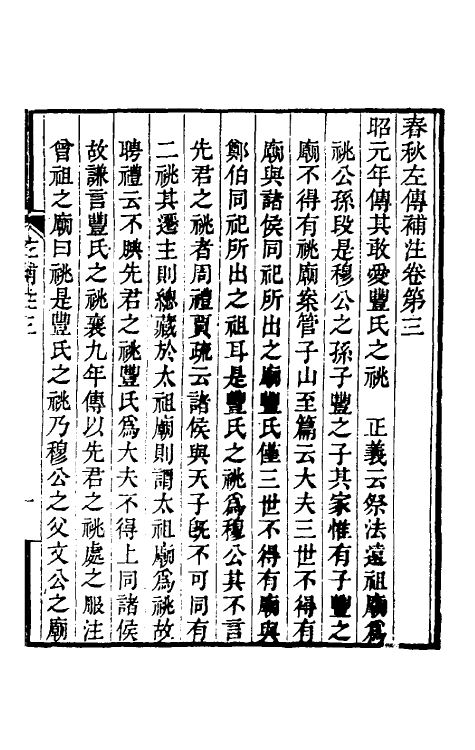 春秋左傳補注卷第三
昭元年傳其敢愛豐氏之祧　正義云祭法遠祖廟爲
祧公孫段是穆公之孫子豐之子其家惟有子豐之
廟不得有祧廟案管子山至篇云大夫三世不得有
廟與諸侯同祀所出之廟豐氏僅三世不得有廟與
鄭伯同祀所出之祖耳是豐氏之祧爲穆公其不言
先君之祧者周禮賈疏云諸侯與天子旣不可同有
二祧其遷主則總藏於太祖廟則謂太祖廟爲祧故
聘禮云不腆先君之祧豐氏爲大夫不得上同諸侯
故謙言豐氏之祧襄九年傳以先君之祧處之服注
曾祖之廟曰祧是豐氏之祧乃穆公之父文公之廟
左補注三
一